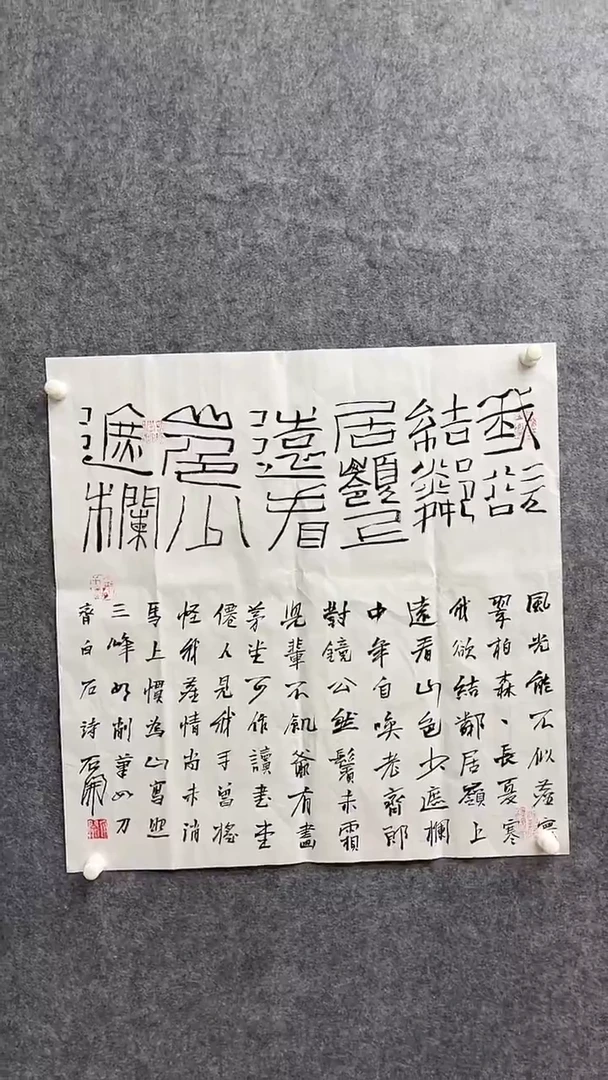 我欲
結鄰
居嶺上
遠看
山色少
遮欄
風光能不似塵寰
翠柏森丶長夏寒
我欲結鄰居嶺上
遠看山色少遮欄
中年自喚老齊郎
對鏡公然鬢未霜
兒輩不飢爺有畫
茅堂可作讀書堂
僊人見我手曾搖
怪我塵情尚未消
馬上慣為山寫照
三峰如削筆如刀
齊白石詩 石